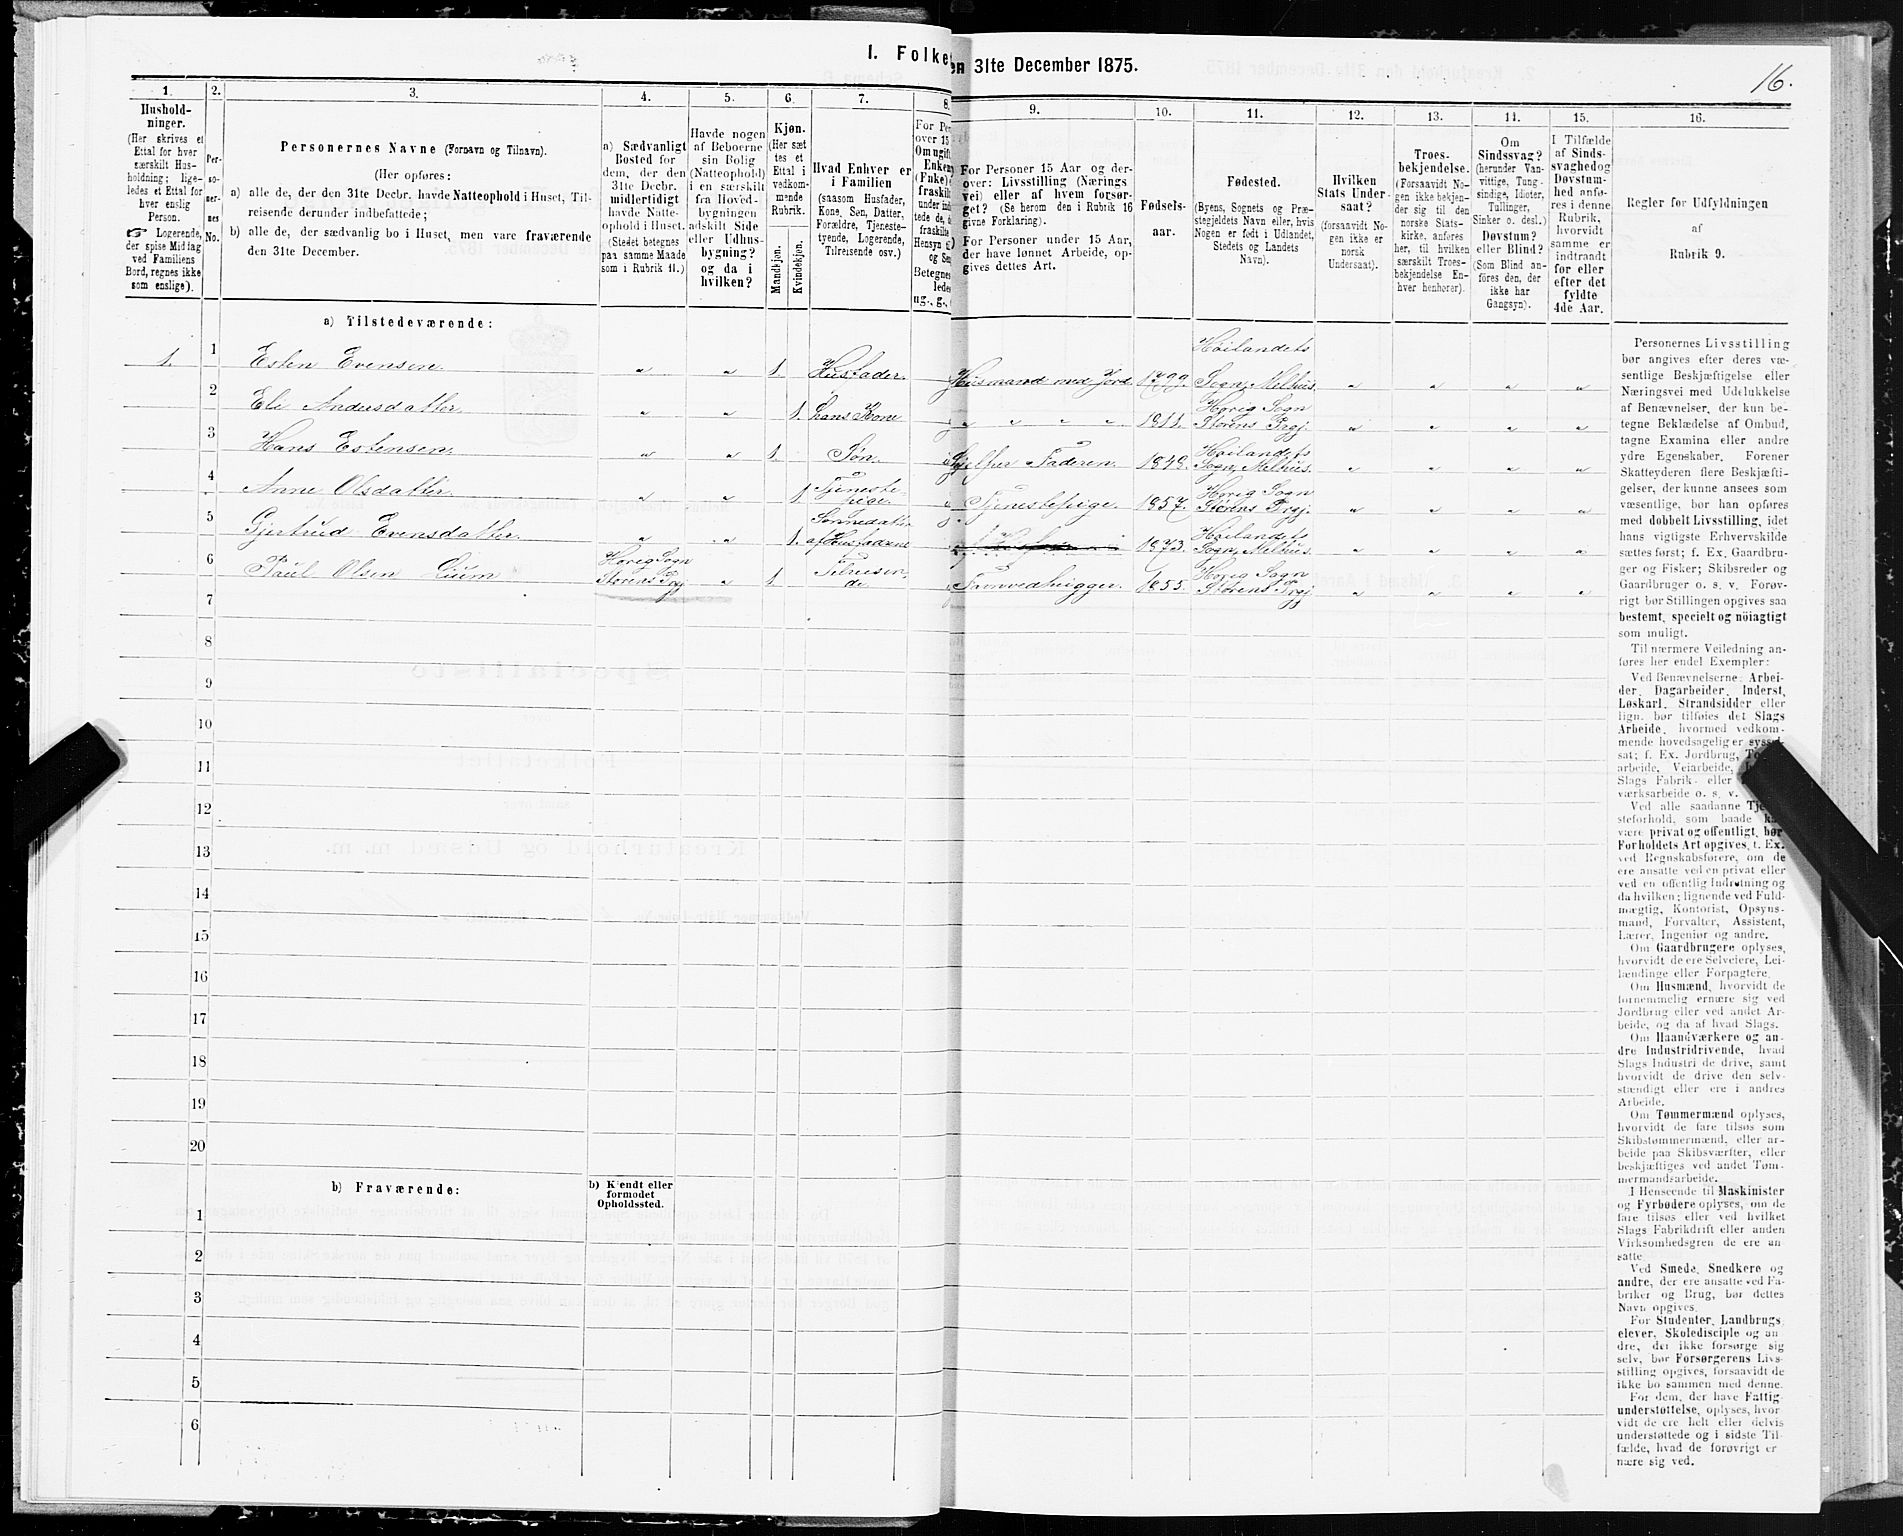 I. Folke
en 31te December 1875.
16.
1.
2.
3.
4.
5.
6.
7.
8.
9.
10.
11.
12.
13.
14.
15.
16.
Hushold-
ninger.
(Her skrives et
Ettal for hver
særskilt Hus-
holdning; lige-
ledes et Ettal for
hver enslig
Person.
Logerende,
der spise Middag
ved Familiens
Bord, regnes ikke
som enslige).
Per-
so-
ner-
nes
No.
Personernes Navne (Fornavn og Tilnavn).
(Her opføres:
a) alle de, der den 31te Decbr. havde Natteophold i Huset, Til-
reisende derunder indbefattede;
b) alle de, der sædvanlig bo i Huset, men vare fraværende
den 31te December.
a) Sædvanligt
Bosted for
dem, der den
31te Decbr.
midlertidigt
havde Natte-
ophold i Huset.
(Stedet betegnes
paa samme Maade
som i Rubrik 11.)
Havde nogen
af Beboerne
sin Bolig
(Natteophold)
i en særskilt
fra Hoved-
bygningen
adskilt Side
eller Udhus-
bygning?
og da i
hvilken?
Kjøn.
(Her sæt
tes et
Ettal i
vedkom-
mende
Rubrik.
Mandkjøn.
Kvindekjøn.
Hvad Enhver er
i Familien
(saasom Husfader,
Kone, Søn, Datter,
Forældre, Tjeneste-
tyende, Logerende,
Tilreisende osv.)
For Per
over 15
Om ugift
Enkem
(Enke)
fraskilt
under ind
tede de, d
fraskilte
Hensyn ti
og Se
Betegnes
ledes
ug., g.,
For Personer 15 Aar og der-
over: Livsstilling (Nærings
vei) eller af hvem forsør-
get? (Se herom den i Rubrik 16
givne Forklaring).
For Personer under 15 Aar,
der have lønnet Arbeide, op-
gives dettes Art.
Fødsels-
aar.
Fødested.
(Byens, Sognets og Præ-
stegjeldets Navn eller, hvis
Nogen er født i Udlandet,
Stedets og Landets
Navn).
Hvilken
Stats Under-
saat?
(forsaavidt No-
gen ikke er
norsk
Undersaat).
Troes-
bekjendelse.
(Forsaavidt No-
gen ikke bekjen-
der sig til den
norske Stats-
kirke, anføres
her, til hvilken
særskilt Troes-
bekjendelse En-
hver henhører).
Om
Sindssvag?
(herunder Van-
vittige, Tung-
sindige, Idioter,
Tullinger,
Sinker o. desl.)
Døvstum?
eller Blind?
(Som Blind an-
føres den, der
ikke har
Gangsyn).
I Tilfælde
af Sinds-
svaghed og
Døvstum-
hed anfø-
res i denne
Rubrik,
hvorvidt
samme er
indtraadt
før eller
efter det
fyldte
4de Aar.
Regler før Udfyldningen
af
Rubrik 9.
a) Tilstedeværende:
1. 1 Esten Evensen " " 1. Husfader. Husmand med Jord 1799. Høilandets Sogn, Melhus. " " " "
2 Eli Andersdatter " " 1. hans Kone " " " " 1811. Horig Sogn Størens Prgj. " " " "
3 Hans Estensen " " 1. Søn. Hjelper Faderen. 1849. Høilandets Sogn, Melhus. " " " "
4 Anne Olsdatter " " 1 Tjeneste-pige. Tjenestepige. 1857. Horig Sogn Størens Prgj. " " " "
5 Gjertrud Evensdatter. " " 1. Sønnedatter af Husfaderne 1873. Høilandets Sogn, Melhus. " " " "
6 Paul Olsen Lium Horig Sogn Størens Prgj " 1 Tilreisen-de. Favnvedhugger. 1855. Horig Sogn Størens Prgj. " " " "
7
8
9
10
11
12
13
14
15
16
17
18
19
20
b) Fraværende:
b) Kjendt eller
formodet
Opholdssted.
1
2
3
4
5
6
Personernes Livsstilling
bør angives efter deres væ-
sentlige Beskjæftigelse eller
Næringsvei med Udelukkelse
af Benævnelser, der kun be-
tegne Beklædelse af Ombud,
tagne Examina eller andre
ydre Egenskaber. Forener
Skatteyderen flere Beskjæfti-
gelser, der kunne ansees som
væsentlige, bør han opføres
med dobbelt Livsstilling, idet
hans vigtigste Erhvervskilde
sættes først; f. Ex. Gaardbru-
ger og Fisker; Skibsreder og
Gaardbruger o. s. v. Forøv-
rigt bør Stillingen opgives saa
bestemt, specielt og nöiagtigt
som muligt.
Til nærmere Veiledning an-
føres her endel Exempler:
Ved Benævnelserne: Arbei-
der, Dagarbeider, Inderst,
Løskarl, Strandsidder eller
lign. bør tilføies det Slags
Arbeide, hvormed vedkom-
mende hovedsagelig er syssel
sat; f. Ex. Jordbrug,
arbeide, Veiarbeide,
Slags Fabrik- eller
værksarbeide o. s. v.
Ved alle saadanne Tje
steforhold, som baade
være privat og offentligt, bør
Forholdets Art opgives, t. Ex.
ved Regnskabsførere, om de
ere ansatte ved en privat eller
ved en offentlig Indretning og
da hvilken; lignende ved Fuld-
mægtig, Kontorist, Opsyns-
mand, Forvalter, Assistent,
Lærer, Ingeniør og andre.
Om Gaardbrugere oplyses,
hvorvidt de ere Selveiere, Lei-
lændinge eller Forpagtere.
Om Husmænd, hvorvidt de
fornemmelig ernære sig ved
Jordbrug eller ved andet Ar-
beide, og da af hvad Slags.
Om Haandværkere og an-
dre Industridrivende, hvad
Slags Industri de drive, samt
hvorvidt de drive den selv-
stændigt eller ere i andres
Arbeide.
Om Tømmermænd oplyses,
hvorvidt de fare tilsøs som
Skibstømmermænd, eller ar-
beide paa Skibsværfter, eller
beskjæftiges ved andet Tøm-
mermandsarbeide.
I Henseende til Maskinister
og Fyrbødere oplyses, om de
fare tilsøs eller ved hvilket
Slags Fabrikdrift eller anden
Virksomhedsgren de ere an-
satte.
Ved Smede, Snedkere og
andre, der ere ansatte ved Fa-
briker og Brug, bør dettes
Navn opgives.
For Studenter, Landbrugs-
elever, Skoledisciple og an-
dre, der ikke forsørge sig
selv, bør Forsørgerens Livs-
stilling opgives, forsaavidt de
ikke bo sammen med denne.
For dem, der have Fattig-
understøttelse, oplyses, hvor-
vidt de ere helt eller delvis
understøttede og i sidste Til-
fælde, hvad de forøvrigt er-
nære sig ved.